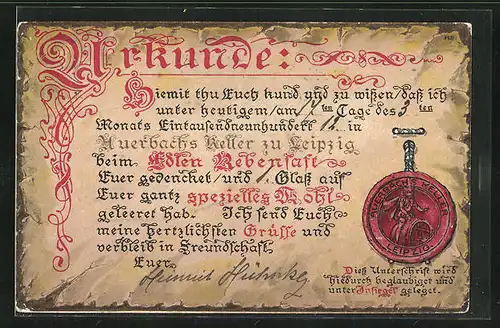 Urkunde:
Hiemit thu Euch kund und zu wißen/daß ich
unter heutigem/am 17ten Tage des 3ten
Monats Eintausendneunhundert 12 in
Auerbachs Keller zu Leipzig
beim Edlen Rebensaft
Euer gedencket/und 1 Glaß auf
Euer gantz spezielles Wohl
geleeret hab. Ich send Euch
meine hertzlichsten Grüsse und
verbleib in Freundschaft
Euer
Heinrich
AUERBACHS KELLER
LEIPZIG
Dieß Unterschrift wird
hiedurch beglaubiget und
unter Insiegel geleget.